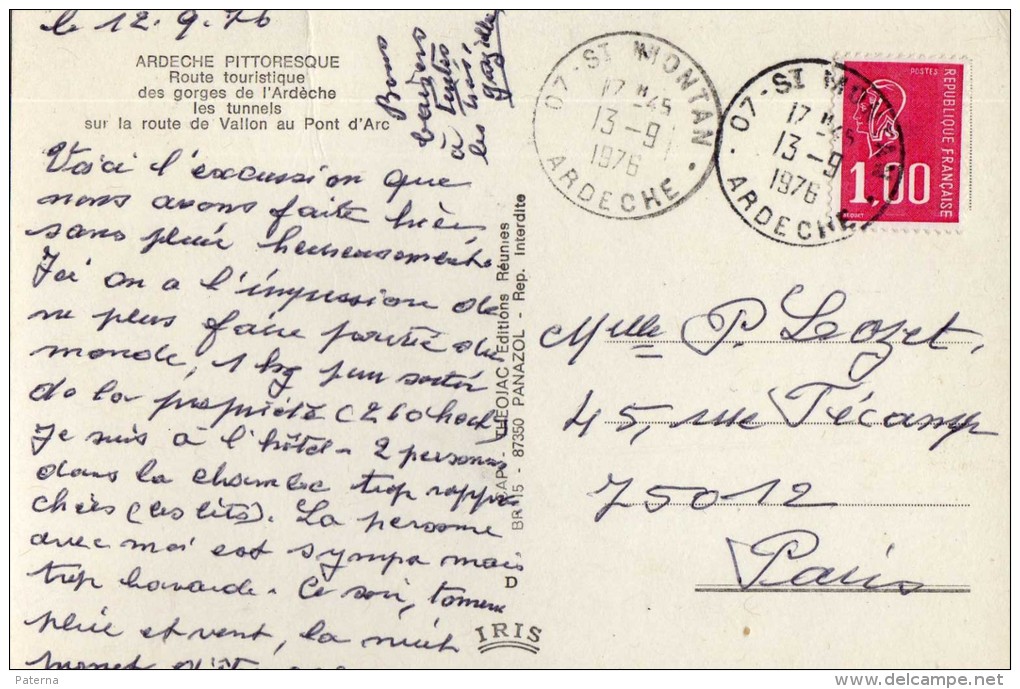 le 12.9.76
ARDECHE PITTORESQUE
Route touristique
des gorges de l'Ardèche
les tunnels
sur la route de Vallon au Pont d'Arc
Bons
baisers
à toutes
les
Voici l'excussion que
nous avons faite hier
sans pluie heureusement.
J'ai on a l'impression de
ne plus faire partie du
monde, 1 kg pour sortir
de la propriété (260 hect)
Je suis à l'hôtel - 2 personnes
dans la chambre trop rappro
chées (les lits). La personne
avec moi est sympa mais
trop bavarde. Ce soir,
pluie et vent, la nuit
THEOJAC Editions Réunies
BR 15 - 87350 PANAZOL - Rep. Interdite
D
IRIS
07-ST MONTAN
17 H 45
13-9
1976
ARDECHE
07-ST MONTAN
17 H 45
13-9
1976
ARDECHE
POSTES
REPUBLIQUE FRANÇAISE
1,00
BEQUET
Melle P. Lozet,
45, rue Fécamp
75012
Paris
Paterna
delcampe.net